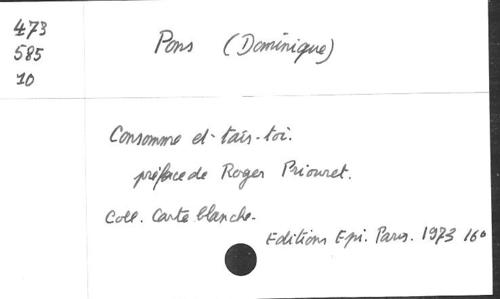 473
585
10
Pons (Dominique)
Consomme et-tais-toi.
préface de Roger Priouret.
Coll. Carte blanche.
Editions Epi. Paris. 1973 160